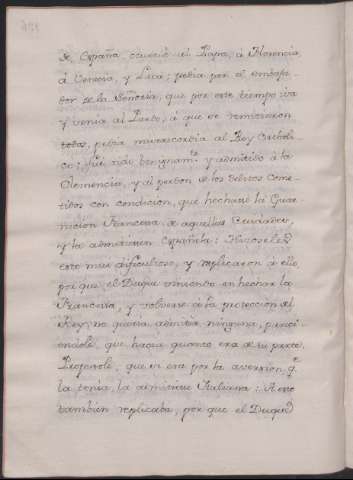 de España ocurrió al Papa, á Florencia,
á Venecia, y Luca; pedia por el embaja-
dor de la Señoria, que por este tiempo iva
y venia al Pardo, á que se remitieron
todos, pedia misericordia al Rey Catholi-
co; fué oido benignam.te y admitido á la
Clemencia, y al perdon de los delitos come-
tidos con condicion, que hechase la Guar-
nicion Francesa de aquellas Ciudades,
y la admitiesen Española: Hizoseles
esto mui dificultoso, y replicaron á ello
por que el Duque viniendo en hechar la
Francesa, y volverse á la proteccion del
Rey, no queria admitir ninguna, pareci-
endole, que hacia quanto era de su parte
Propusole, que si era por la aversion q.e
la tenia, la admitiese Italiana: A esto
tambien replicaba, por que el Duque